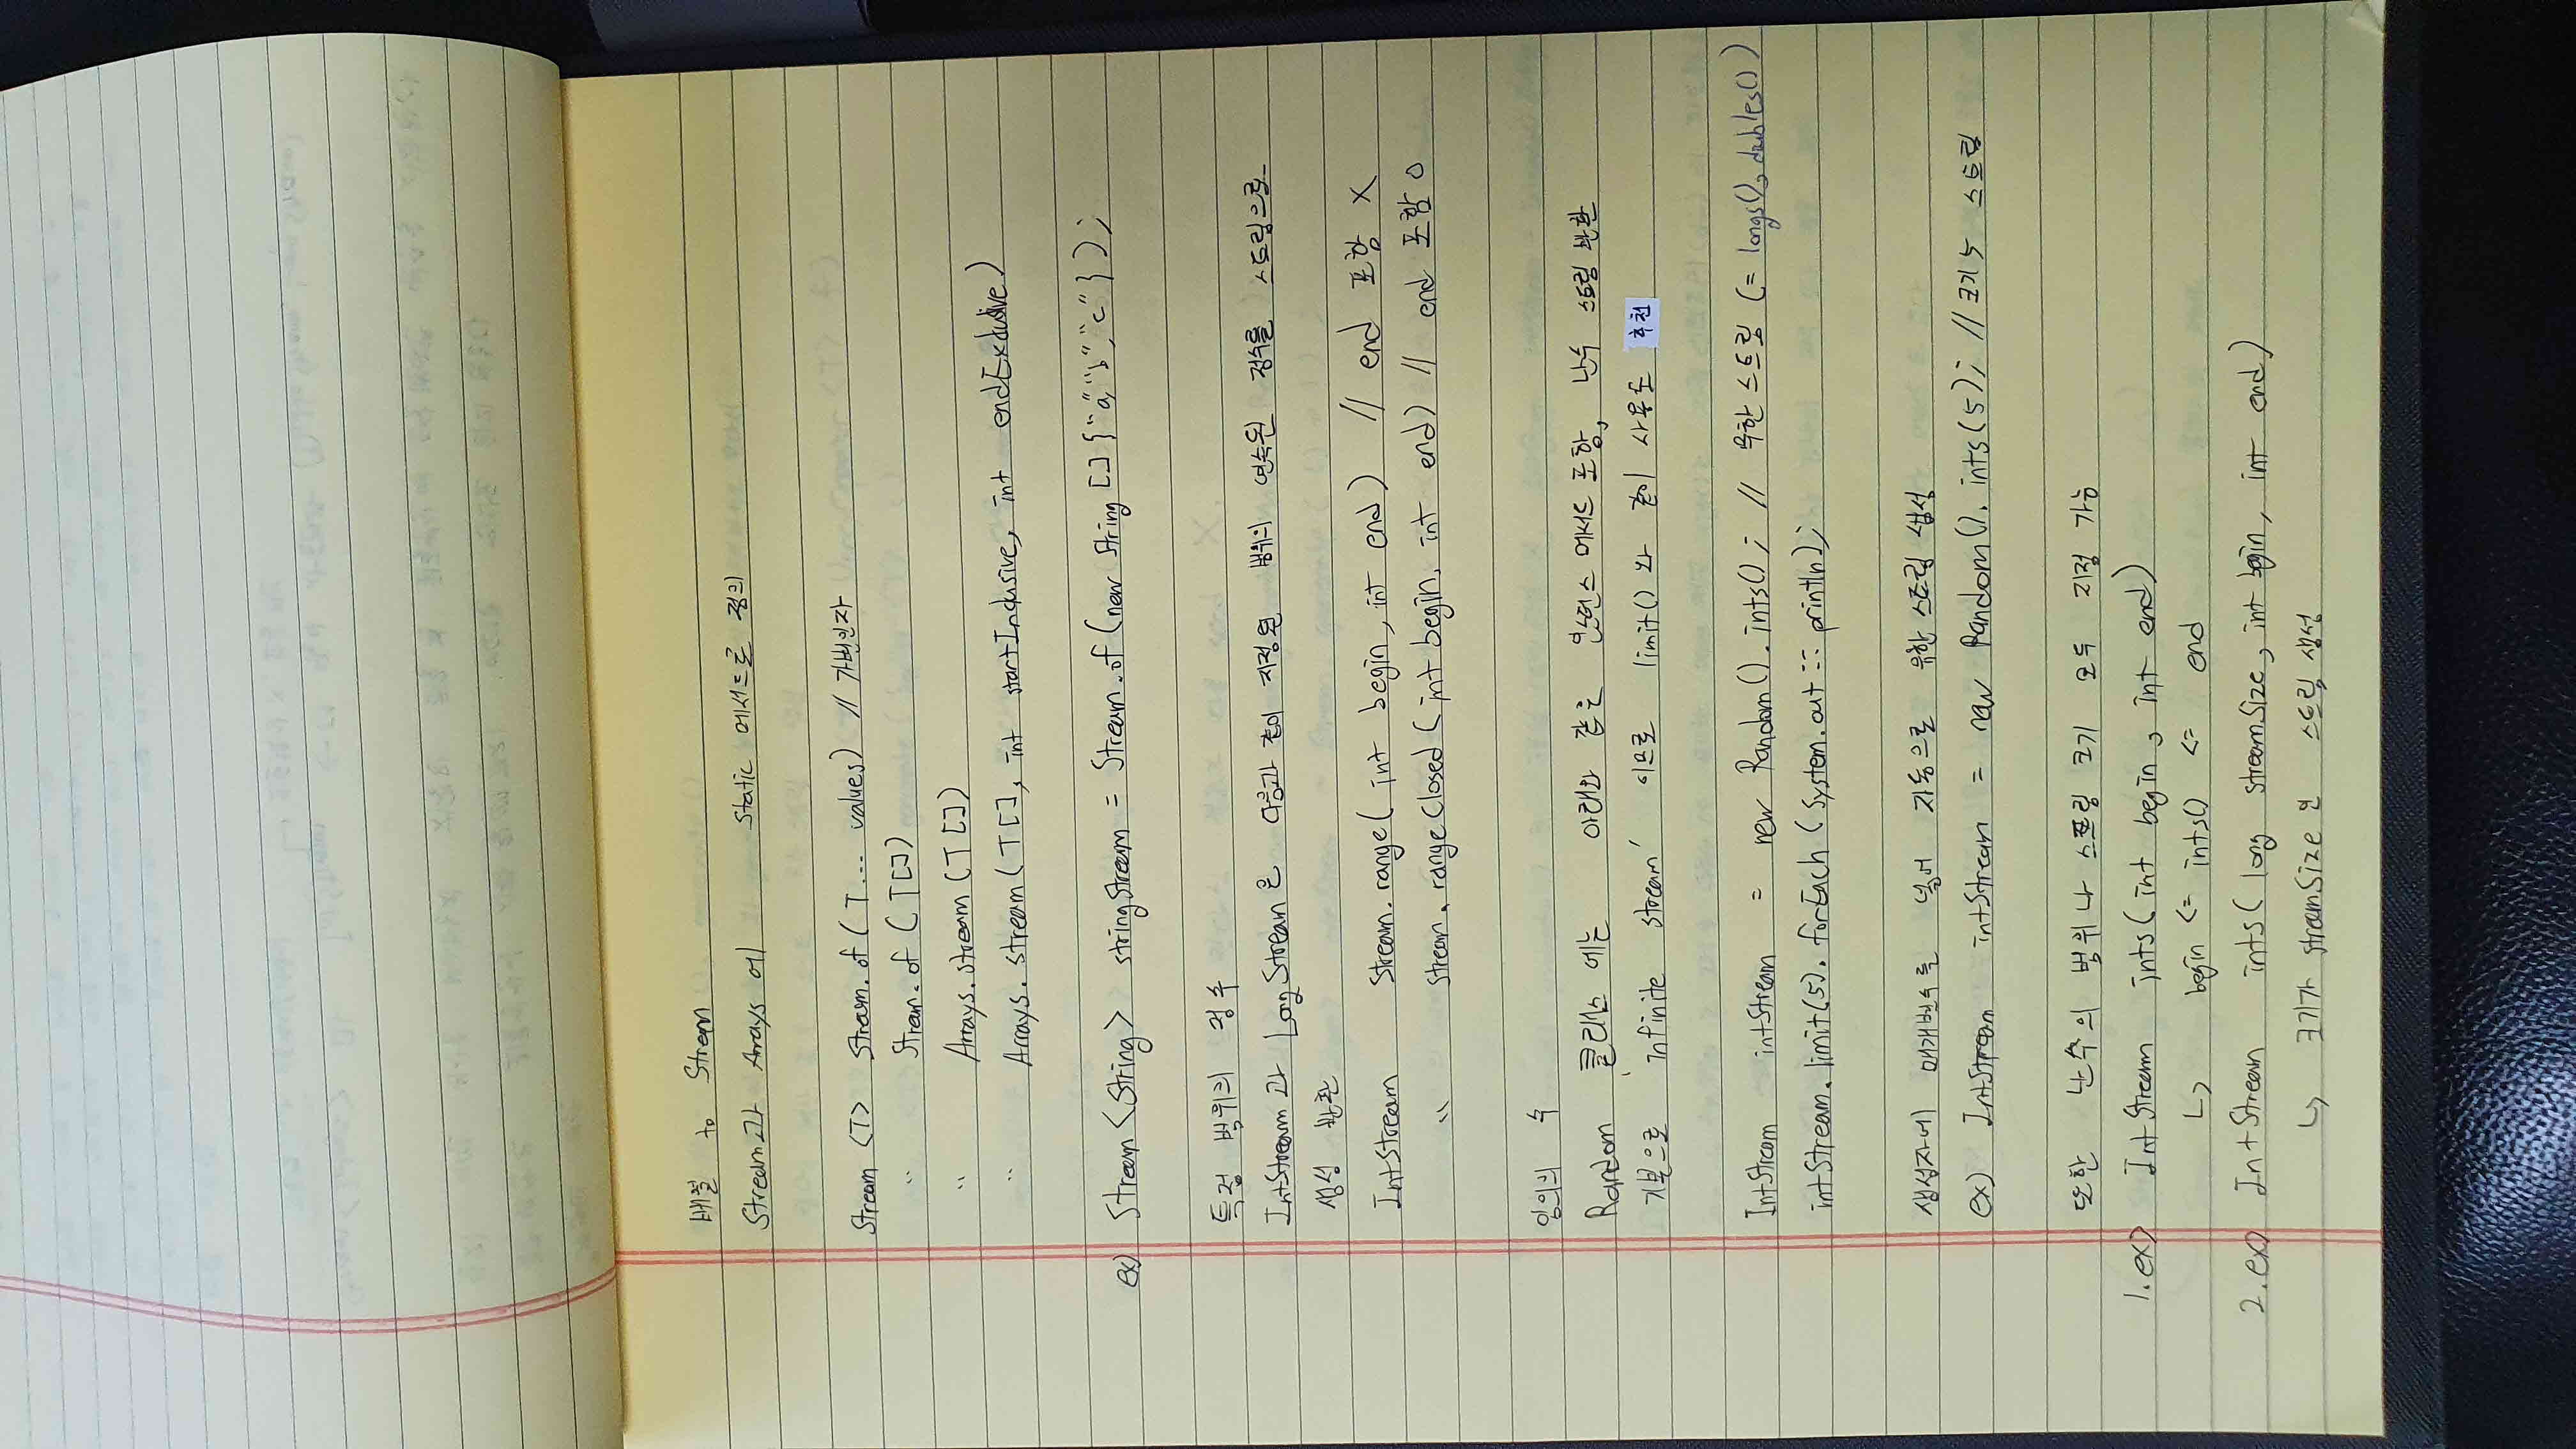 배열 to Stream
Stream과 Arrays 에 static 메서드로 정의
Stream <T> Stream.of ( T... values) // 가변인자
" Stream.of ( T[])
" Arrays.stream (T [])
" Arrays.stream (T[], int startInclusive, int endExclusive)
ex) Stream <String> stringStream = Stream.of (new String [] {"a","b","c"});
특정 범위의 정수
IntStream과 LongStream은 다음과 같이 지정된 범위의 연속된 정수를 스트림으로
생성 반환
IntStream Stream.range( int begin, int end ) // end 포함 X
" Stream.rangeClosed ( int begin, int end) // end 포함 O
임의의 수
Random 클래스 에는 아래와 같은 인스턴스 메서드 포함, 난수 스트림 반환
기본으로 'infinite stream' 이므로 limit() 와 같이 사용도 추천
IntStream intStream = new Random().ints(); // 무한 스트림 (= longs(), doubles())
intStream.limit(5).forEach (System.out::println);
생성자에 매개변수를 넣어 자동으로 유한 스트림 생성
ex) IntStream intStream = new Random().ints(5); // 크기 5 스트림
또한 난수의 범위나 스트림 크기 모두 지정 가능
1. ex) IntStream ints( int begin, int end)
↳ begin <= ints() <= end
2. ex) IntStream ints( long streamSize, int begin, int end)
↳ 크기가 streamSize 인 스트림 생성